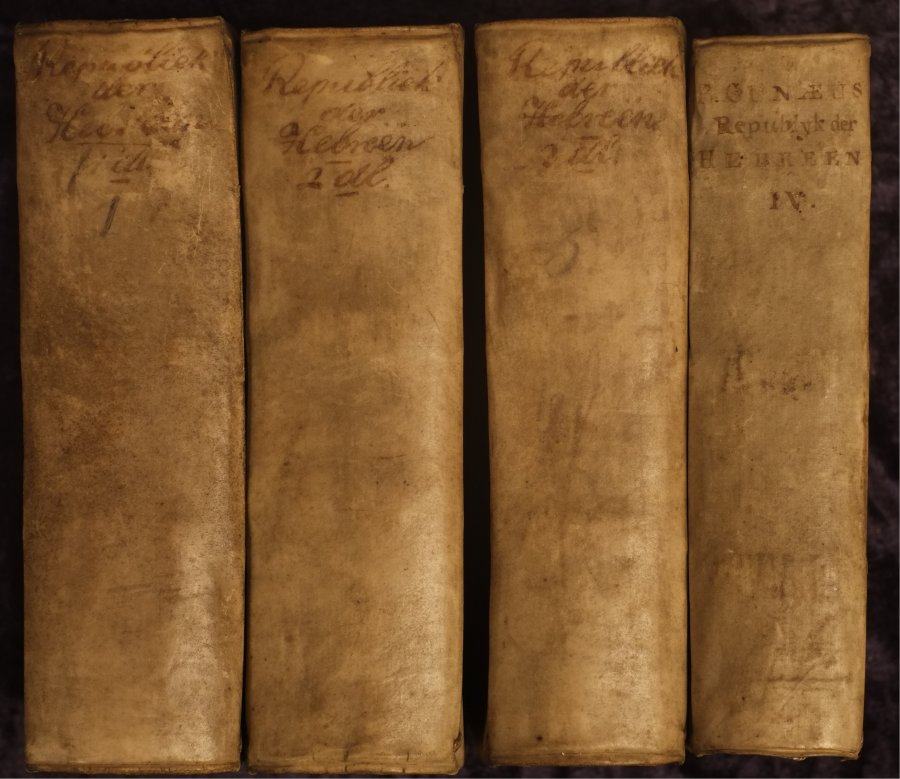 Republiek
der
Hebreën
1 dl.
1
Republiek
der
Hebreën
2 dl.
Republiek
der
Hebreën
3 dl.
P. CUNÆUS
Republyk der
HEBREEN
IV.